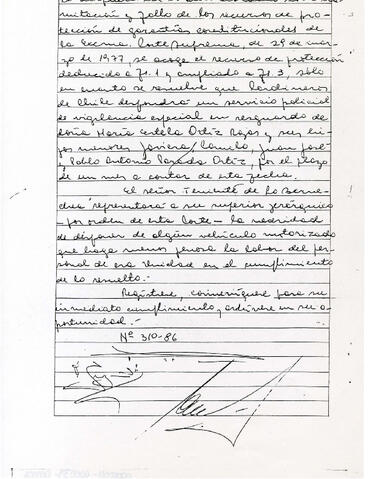 mitación y fallo de los recursos de pro-
tección de garantías constitucionales de
la Excma. Corte Suprema, de 29 de mar-
zo de 1977, se acoge el recurso de protección
deducido a fs. 1 y ampliado a fs. 3, sólo
en cuanto se resuelve que Carabineros
de Chile dispondrá un servicio policial
de vigilancia especial en resguardo de
doña María Estela Ortiz Rojas y sus hi-
jos menores Javiera, Camilo, Juan José
y Pablo Antonio Parada Ortiz, por el plazo
de un mes a contar de esta fecha.
El señor Teniente de lo Barne-
chea representará a su superior jerárquico
- por orden de esta Corte - la necesidad
de disponer de algún vehículo motorizado
que haga menos penosa la labor del per-
sonal de esa Unidad en el cumplimiento
de lo resuelto.-
Regístrese, comuníquese para su
inmediato cumplimiento y archívese en su o-
portunidad.-
Nº 310-86